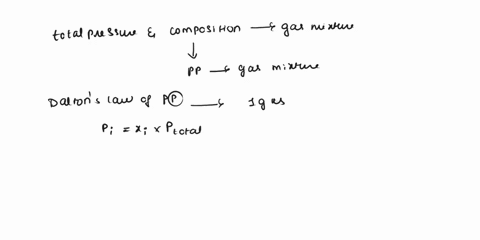 total pressure & composition → gas mixture
↓
PP → gas mixture
Dalton's law of PP → 1 gas
Pi = xi × Ptotal